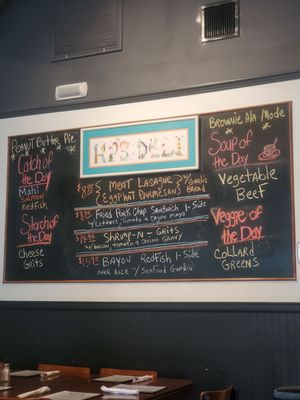 Peanut Butter Pie
Catch of
the Day
Mahi
Salmon
Redfish
Starch of
the Day
Cheese
Grits
Meat Lasagna
Eggplant Parmesan
w/Garlic
Bread
Fried Pork Chop Sandwich 1-Side
w/Lettuce, Tomato & Cajun Mayo
Shrimp-N-Grits
w/Bacon, Tomato & Onion Gravy
Bayou Redfish 1-Side
over Rice w/ Seafood Gumbo
Brownie Ala Mode
Soup of
the Day
Vegetable
Beef
Veggie of
the Day
Collard
Greens